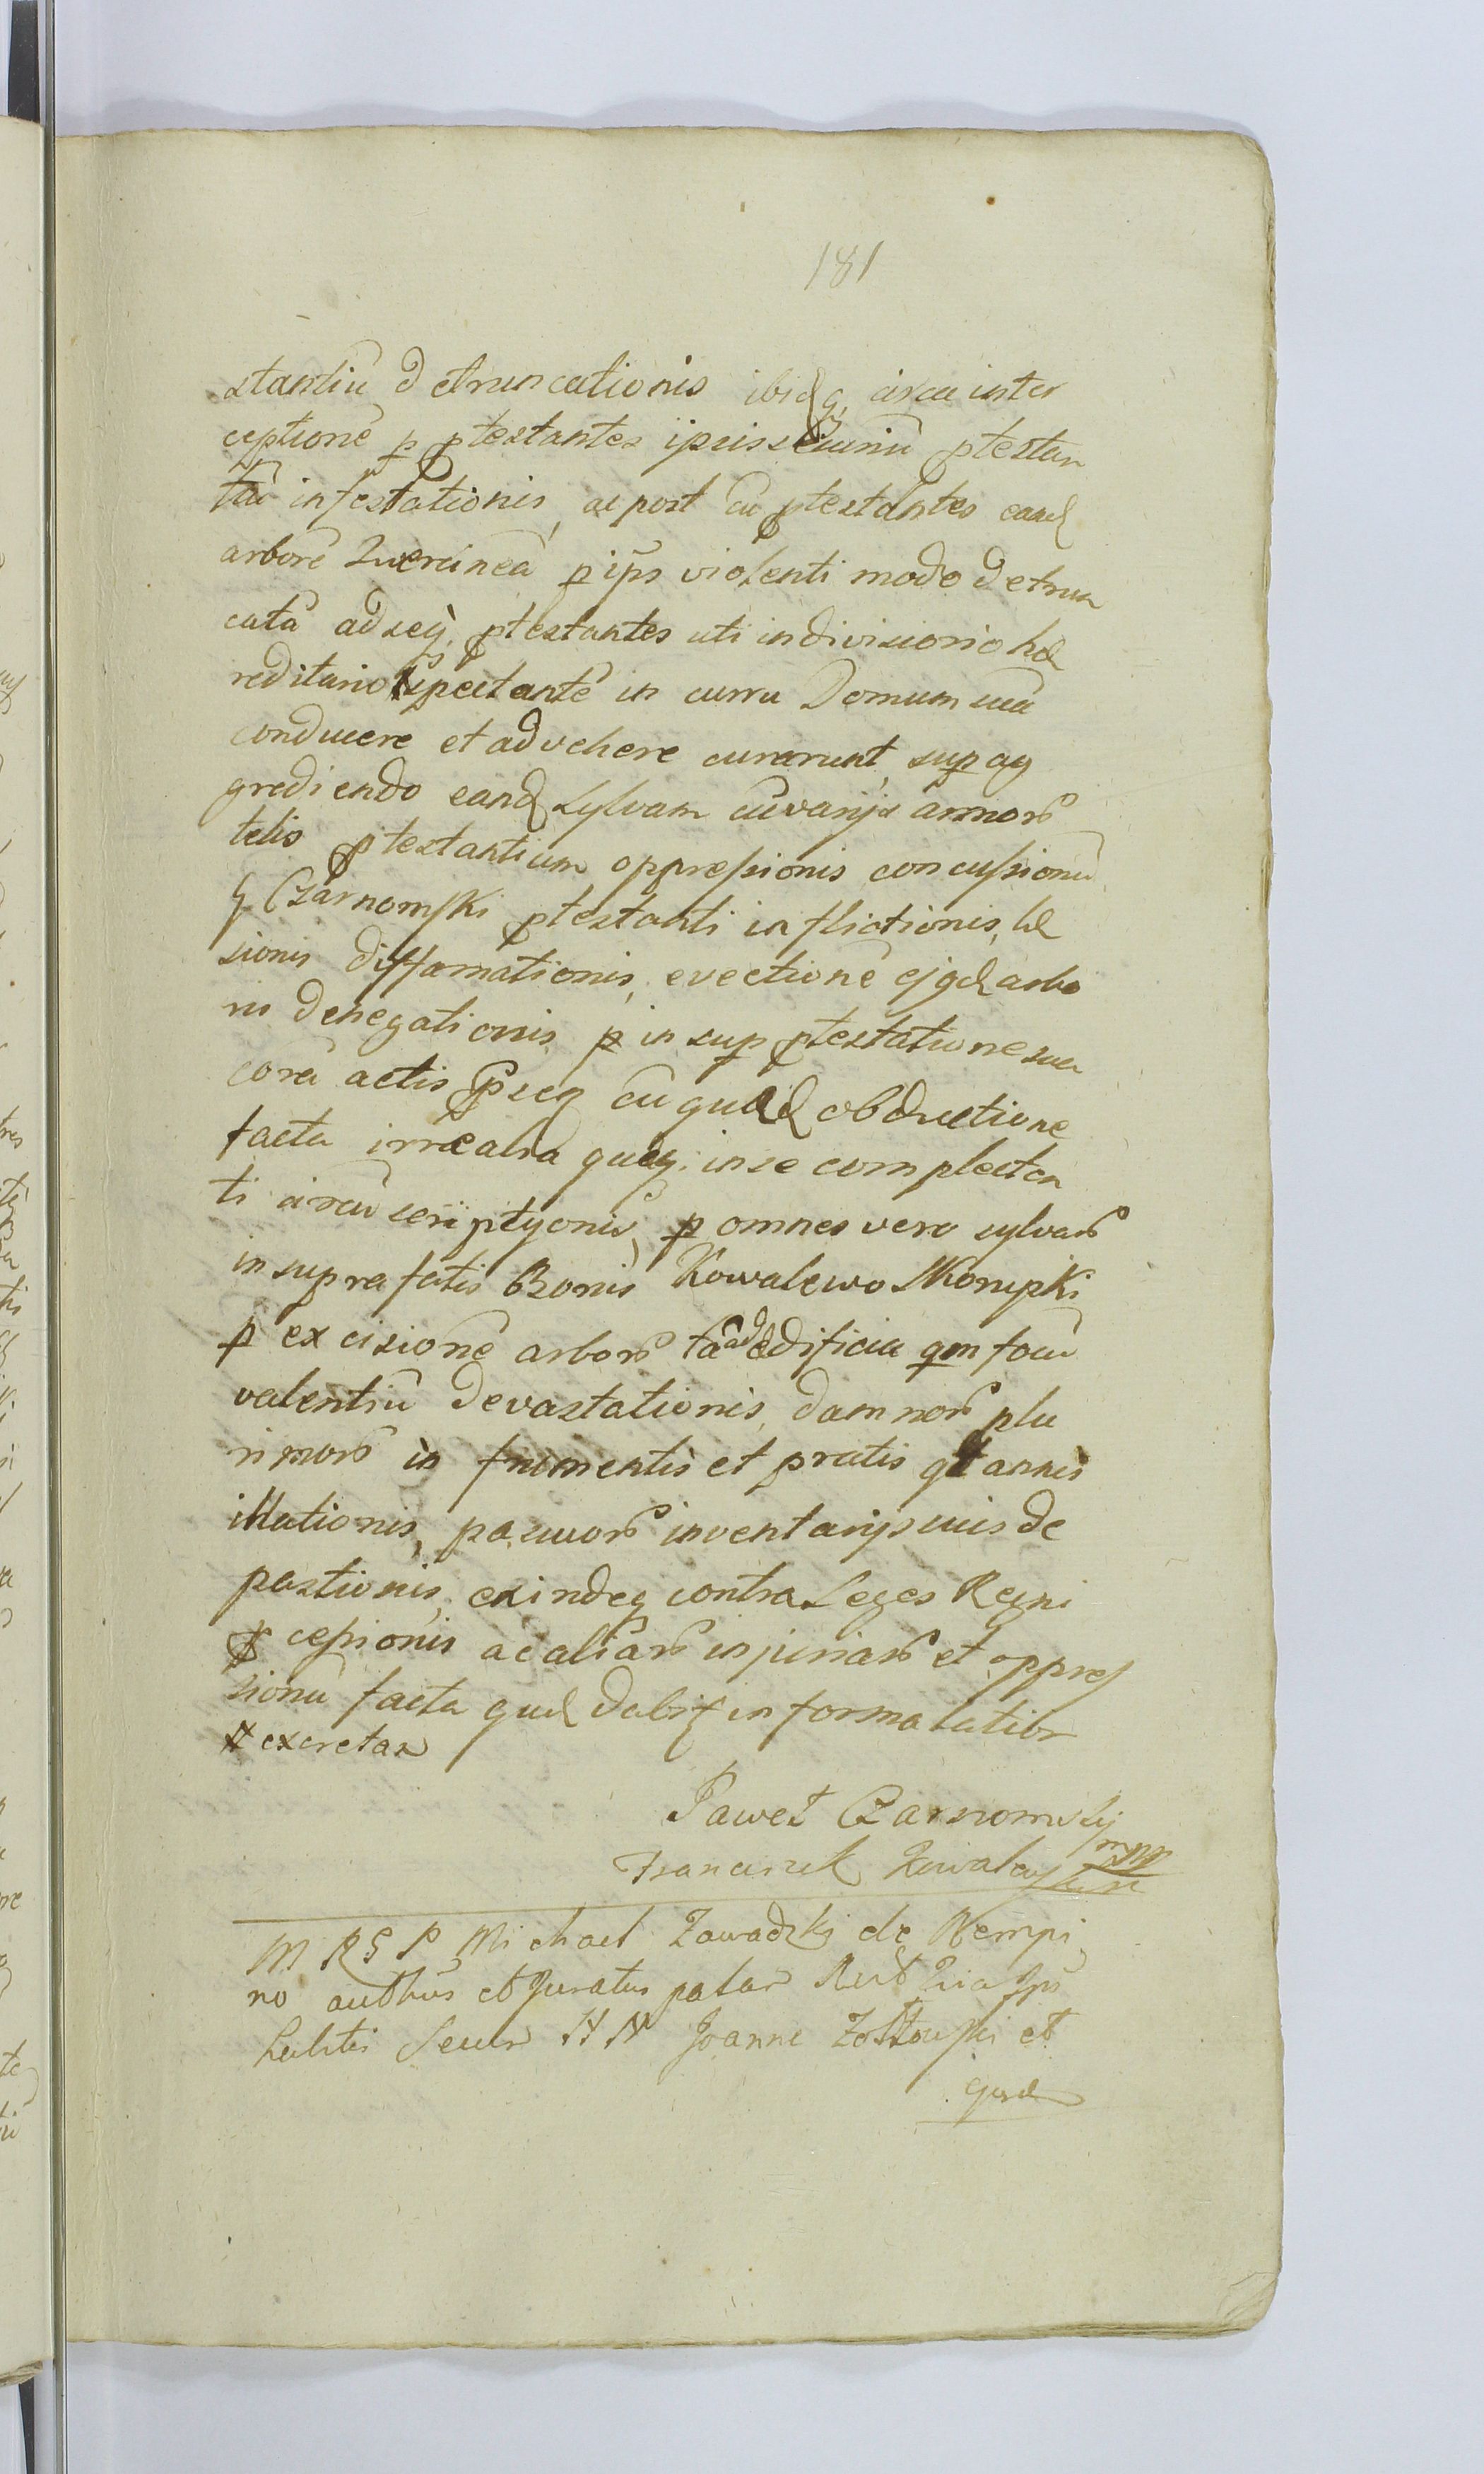 181
stantiũ detruncationis ibidq, circa inter
ceptionẽ p ptestantes ipsissimũ ptestan
tiũ infestationis, ac post cũ ptestantes eand
arborẽ Quercineã p ips violenti modo detrun
catã ad seq; ptestantes uti indivisionio hæ
reditario spectantẽ in curru Domum suã
conducere et advehere curarunt, sup ag
grediendo eand sylvam cũ varijs armor
telis ptestantium oppressionis concussionũ
G Czarnomski ptestanti inflictionis, læ
sionis diffamationis, evectionẽ ejqd arbo
ris denegationis p insup ptestatione sua
corã actis cũ quad obductione
facta irrealia quæq; in se complecten
ti circũscriptyonis, p omnes vero sylvar
in suprafatis Bonis Kowalewo Skorupki
p excisionẽ arbor tã ad ædificia qm focũ
valentiũ devastationis, damnor plu
rimor in frumentis et pratis qt annis
illationis, pascuor inventarijs suis de
pastionis, exindeq contra Leges Regni
cessionis ac aliãr injuriar et oppres
sionũ facta qud dabit in forma latior
excretar
Paweł Czarnomsky
mpp
Franciszek Kowalewski
M R G P Michael Zawadzki de Nempi
no authus et Juratus palar
Joanne Zołtowski et
Gnd